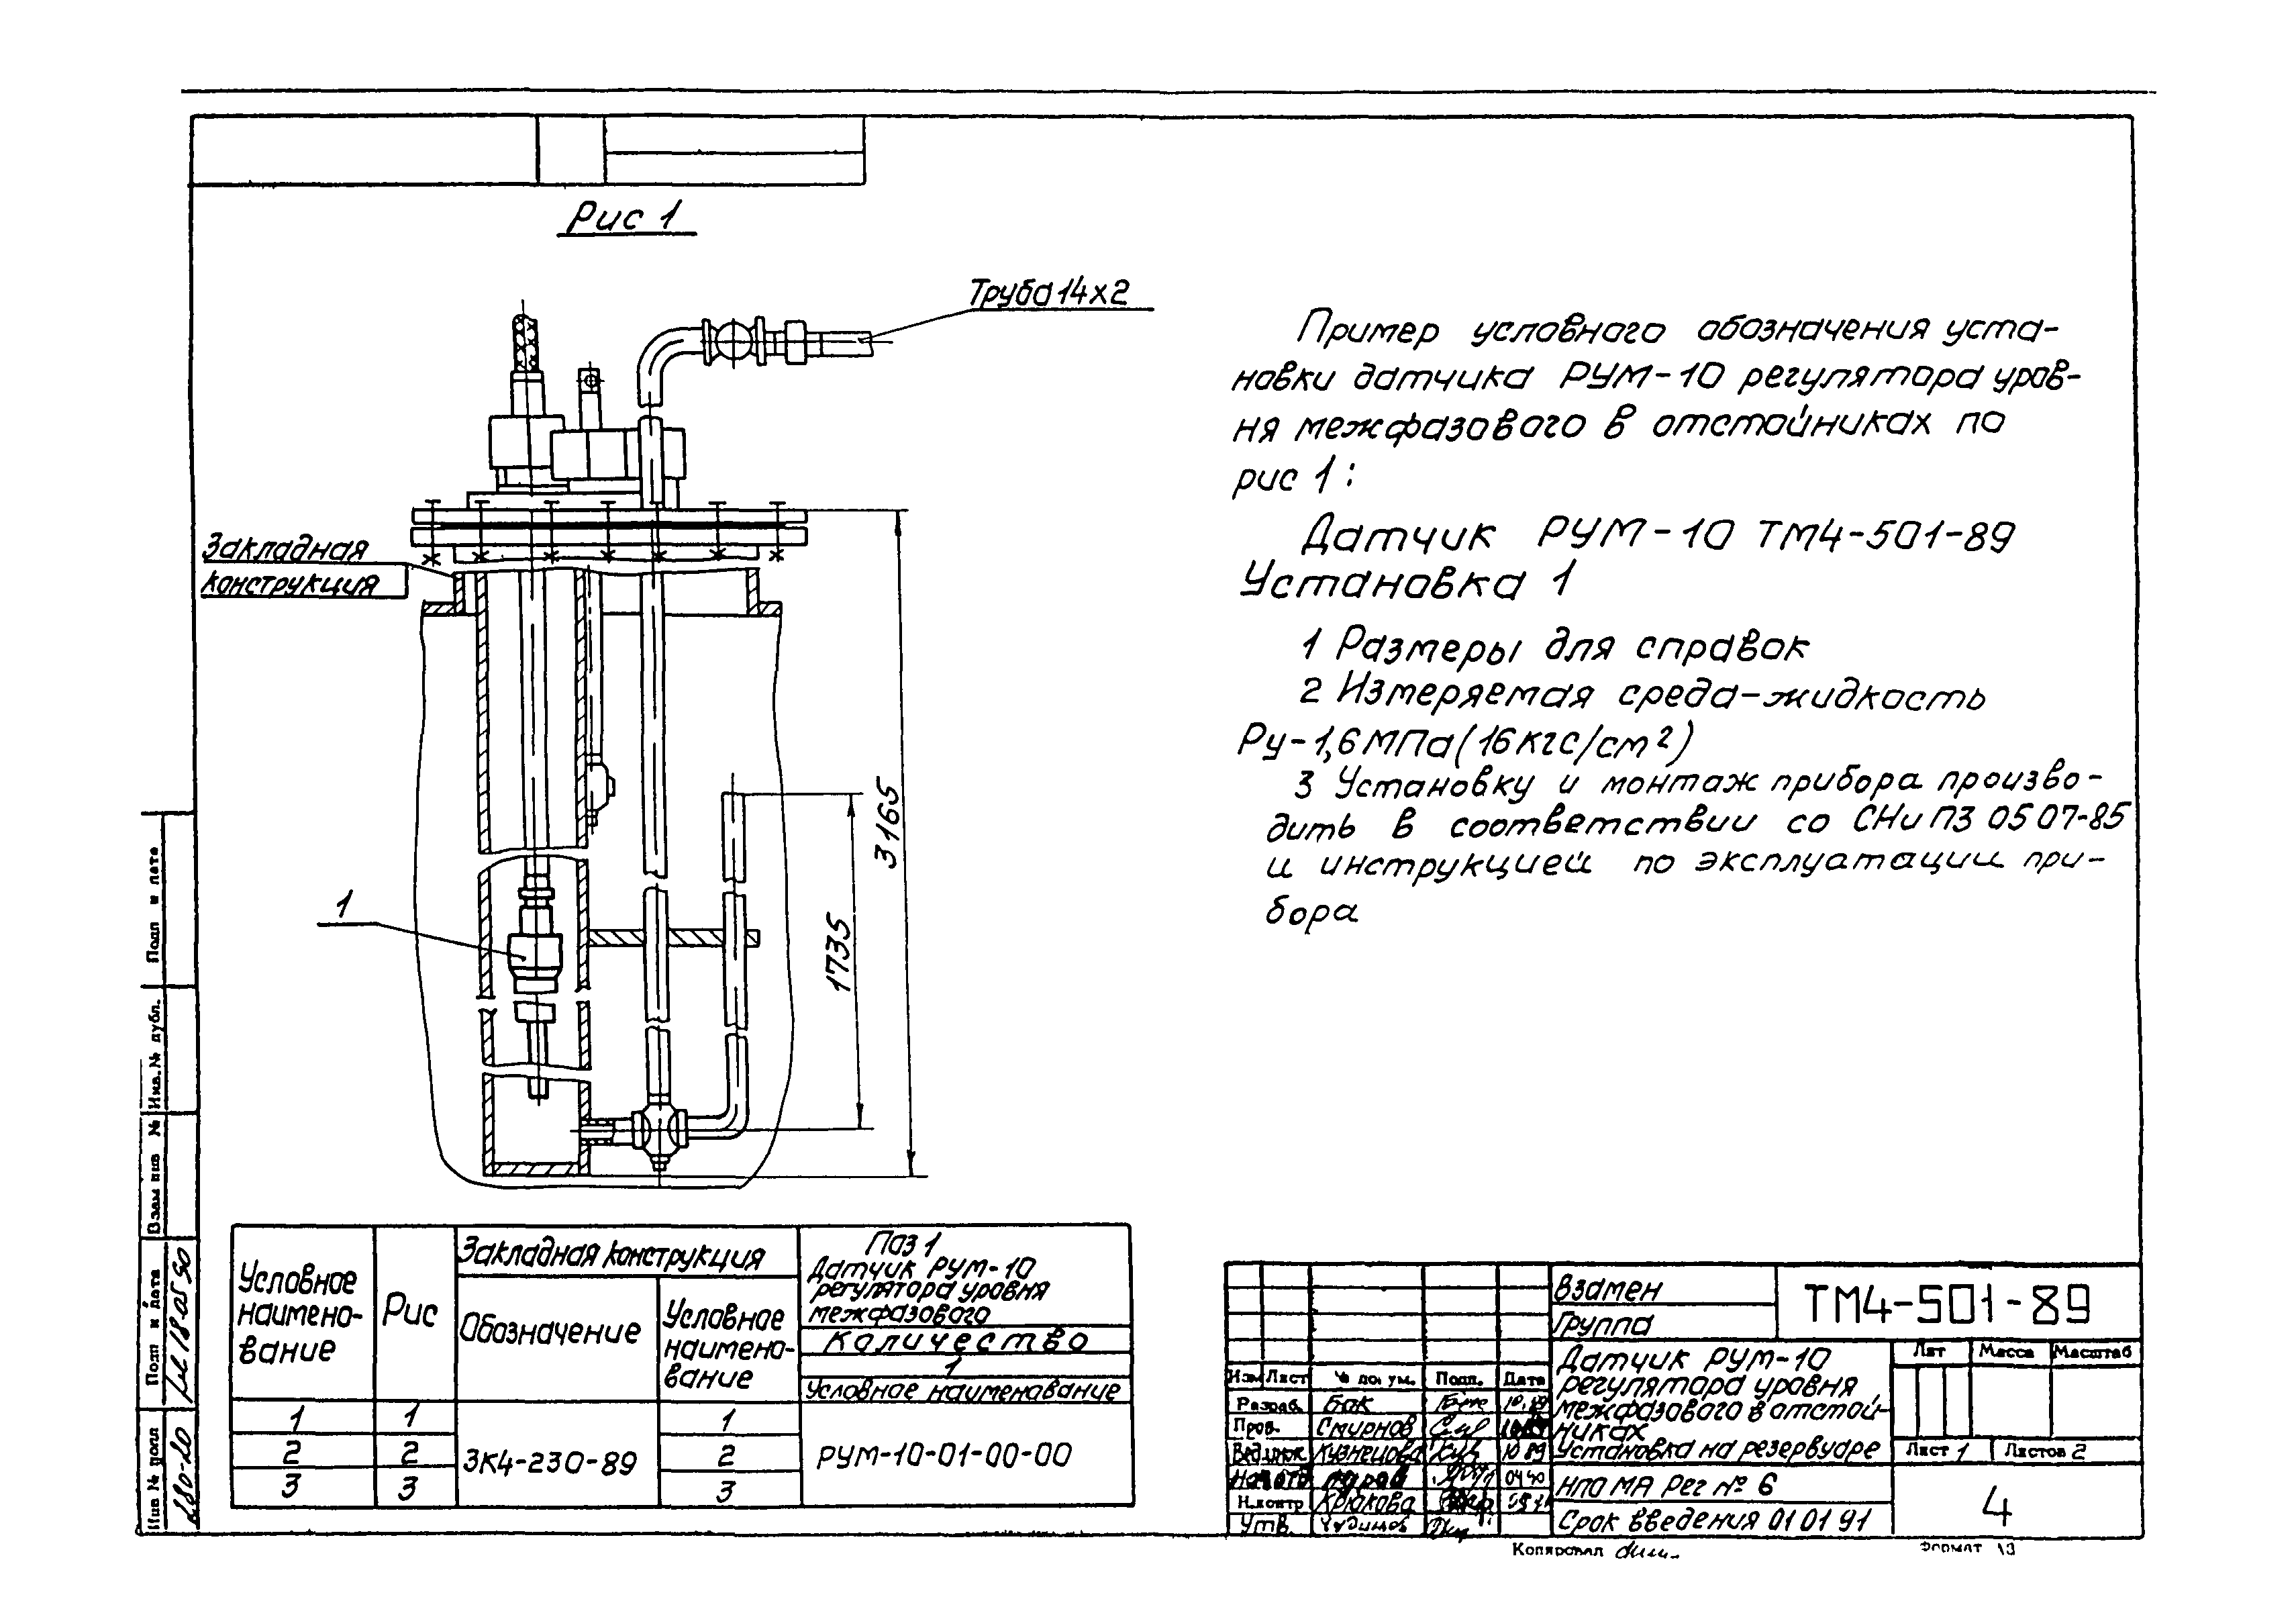 Рис 1
Труба 14х2
Закладная
конструкция
1
3165
1735
Пример условного обозначения уста-
новки датчика РУМ-10 регулятора уров-
ня межфазового в отстойниках по
рис 1:
Датчик РУМ-10 ТМ4-501-89
Установка 1
1 Размеры для справок
2 Измеряемая среда-жидкость
Ру-1,6 МПа (16 кгс/см²)
3 Установку и монтаж прибора произво-
дить в соответствии со СНиП3 05 07-85
и инструкцией по эксплуатации при-
бора
Условное
наимено-
вание
Рис
Закладная конструкция
Обозначение
Условное
наимено-
вание
Поз 1
Датчик РУМ-10
регулятора уровня
межфазового
Количество
1
Условное наименование
1 1 1
2 2 ЗК4-230-89 2 РУМ-10-01-00-00
3 3 3
Взамен
Группа
ТМ4-501-89
Датчик РУМ-10
регулятора уровня
межфазового в отстой-
никах
Установка на резервуаре
Лит Масса Масштаб
Лист 1 Листов 2
НПО МА Рег № 6
Срок введения 01 01 91
4
Изм Лист № докум. Подп. Дата
Разраб. Бак 10.89
Пров. Смирнов
Вед.инж. Кузнецова 10 89
04 90
Н.контр Крюкова
Утв.
Копировал
Формат А3
Подп и дата
Инв.№ дубл.
Взам инв №
Подп и дата 18 05 90
Инв № подл